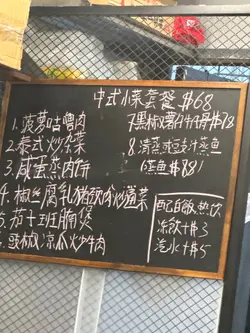 中式小菜套餐 $68
1. 菠萝咕噜肉
2. 泰式炒杂菜
3. 咸蛋蒸肉饼
4. 椒丝腐乳猪颈肉炒通菜
5. 茄子班腩煲
6. 豉椒凉瓜炒牛肉
7. 黑椒汁牛仔骨 $78
8. 清蒸或豉汁蒸鱼
(条鱼 $88)
配白饭热饮
冻饮+$3
汽水+$5